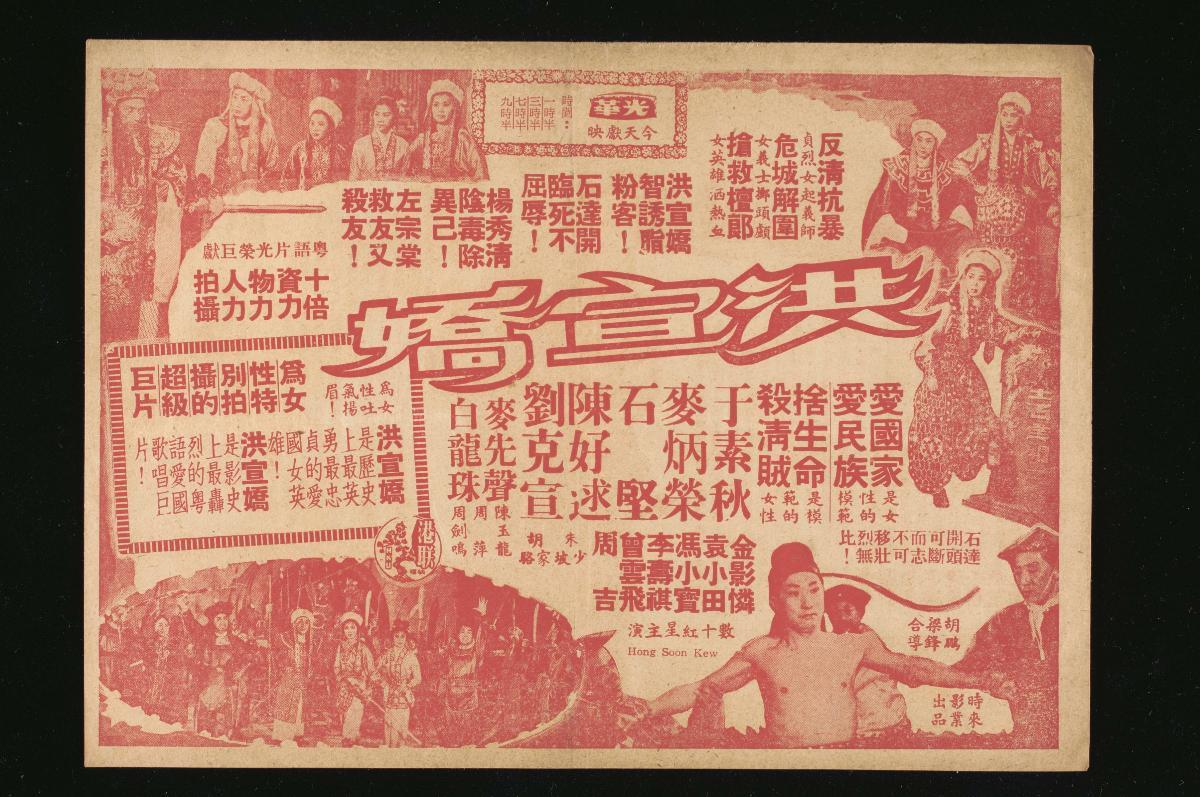 光華
今天獻映
時間：
一時半
三時半
七時半
九時半
反清抗暴
貞烈女起義師
危城解圍
女義士擲頭顱
搶救檀郎
女英雄洒熱血
洪宣嬌
智誘脂
粉客！
石達開
臨死不
屈辱！
楊秀清
陰毒除
異己！
左宗棠
救友又
殺友！
粵語片光榮巨獻
十倍
資力
物力
人力
拍攝
洪宣嬌
愛國家
愛民族
是女
性的
模範
捨生命
殺清賊
是模
範的
女性
于素秋
麥炳榮
石堅
陳好逑
劉克宣
麥先聲
白龍珠
陳玉龍
周萍
周劍鳴
朱少坡
胡家駱
金影憐
袁小田
馮小寶
李壽祺
曾雲飛
周吉
數十紅星主演
Hong Soon Kew
為女
性特
別拍
攝的
超級
巨片
為女
性吐
氣揚
眉！
洪宣嬌
是歷史
上最英
勇最忠
貞的愛
國女英
雄！
洪宣嬌
是影史
上最轟
烈的粵
語愛國
歌唱巨
片！
港聯
石達
開頭
可斷
而志
不可
移壯
烈無
比！
胡鵬
梁鋒
合導
時來
影業
出品